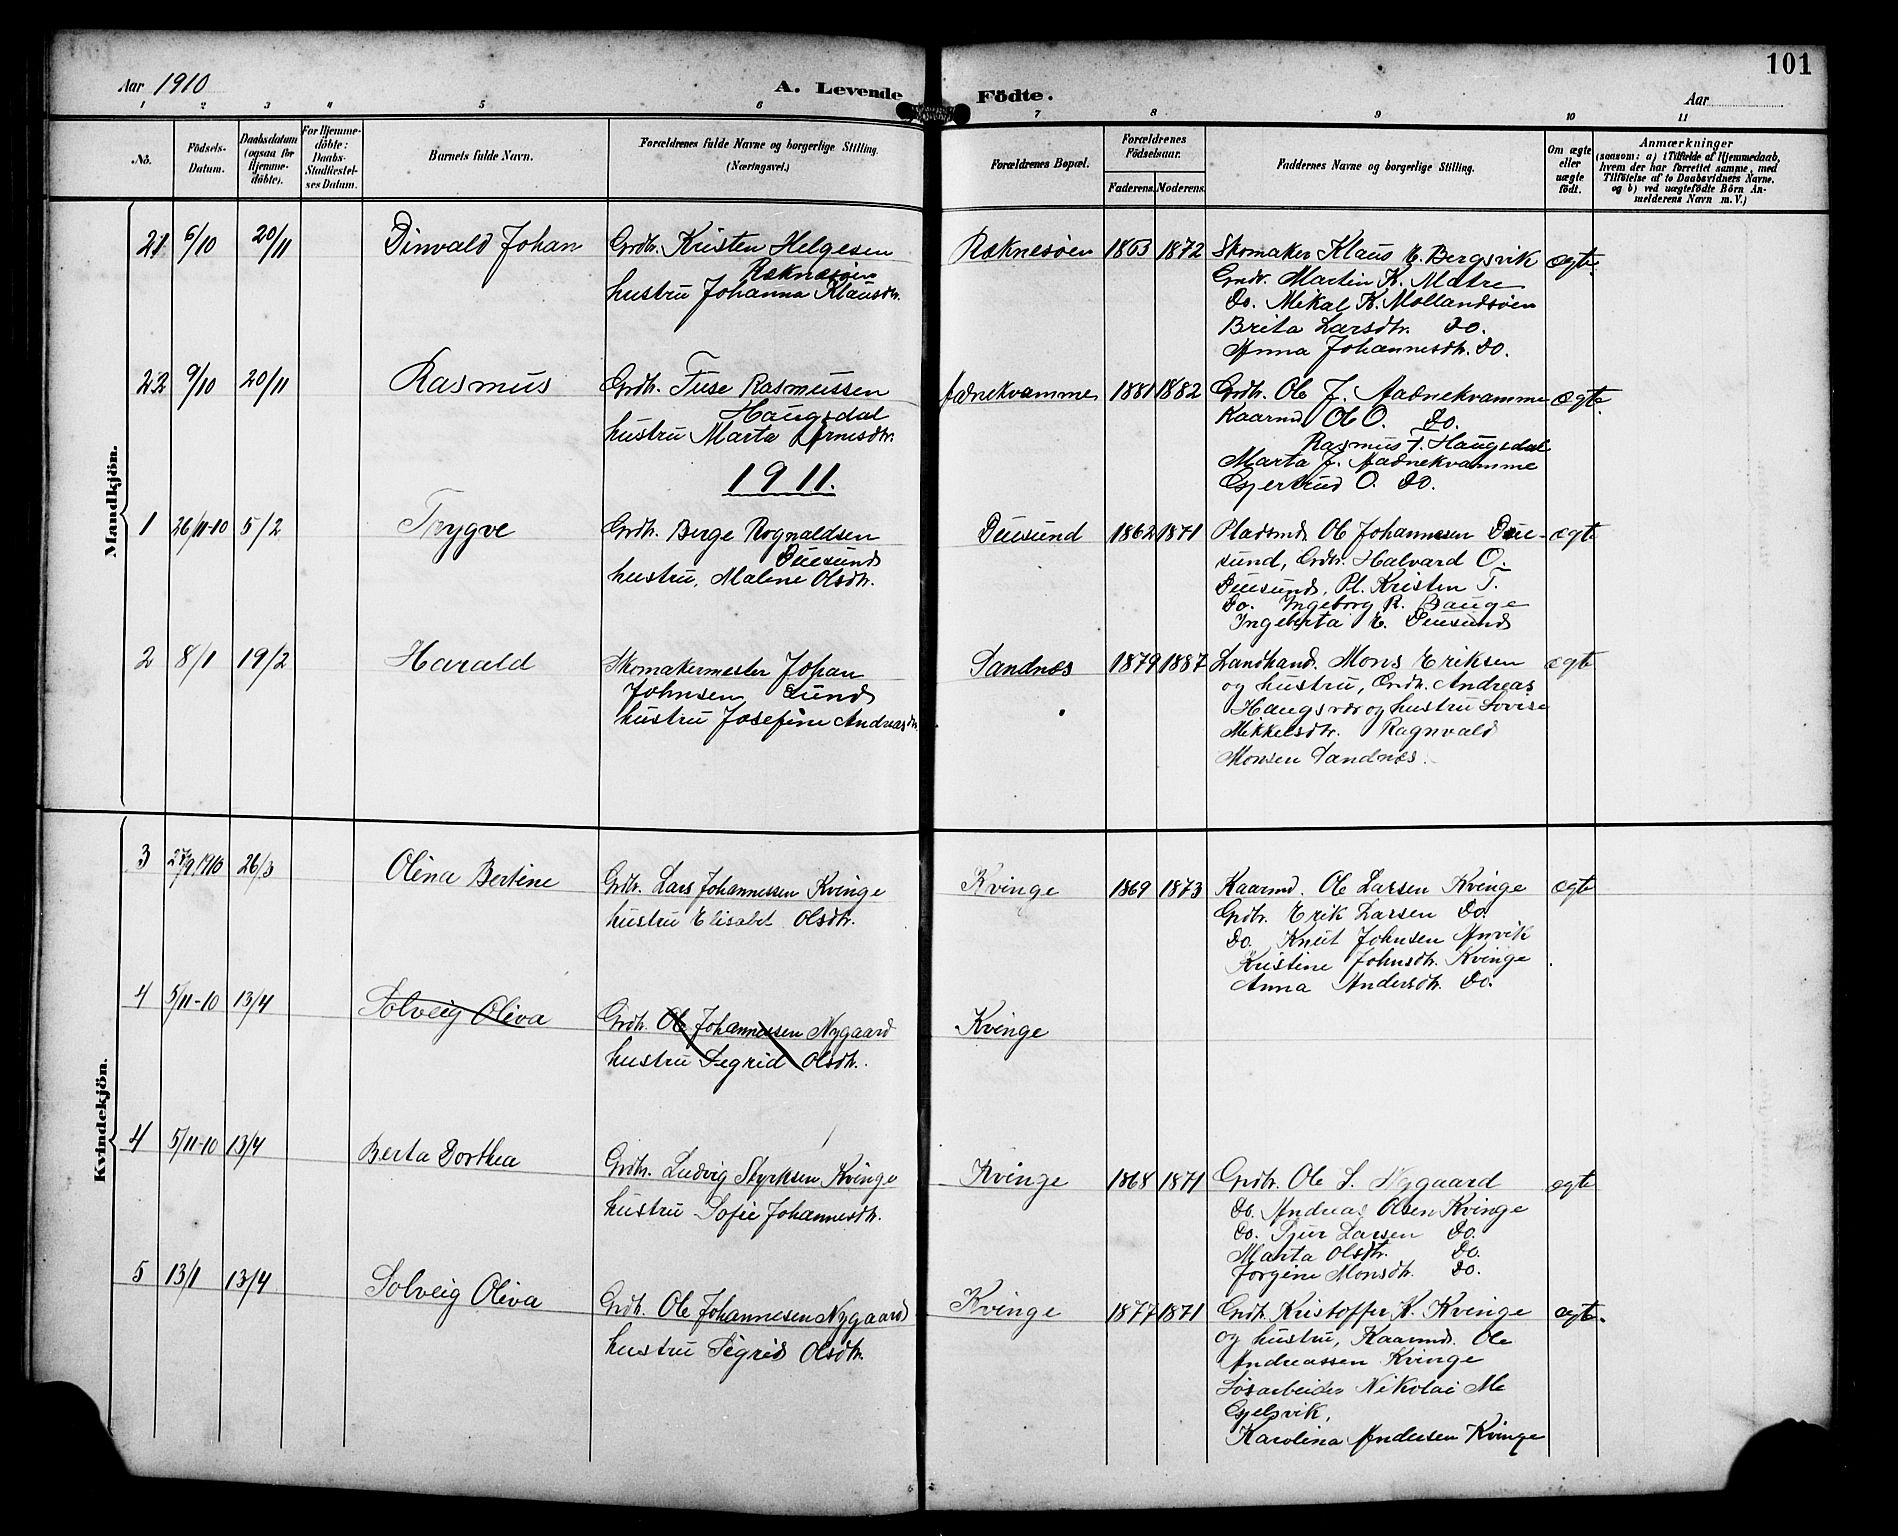 101
Aar 1910
A. Levende Födte.
Aar
1 2 3 4 5 6 7 8 9 10 11
No.
Födsels-Datum.
Daabsdatum (ogsaa for Hjemme-döbte).
For Hjemme-döbte: Daabs-Stadfæstel-ses Datum.
Barnets fulde Navn.
Forældrenes fulde Navne og borgerlige Stilling. (Næringsvei.)
Forældrenes Bopæl.
Forældrenes Födselsaar.
Faderens. Moderens.
Faddernes Navne og borgerlige Stilling.
Om ægte eller uægte födt.
Anmærkninger
(saasom: a) i Tilfælde af Hjemmedaab, hvem der har forrettet samme, med Tilföielse af to Daabsvidners Navne, og b) ved uægtefödte Börn An-melderens Navn m. V.)
Mandkjön.
21 6/10 20/11 Dinvald Johan
Grdbr. Kristen Helgesen
Ræknesøen
hustru Johanna Klausdtr.
Ræknesøen 1863 1872
Skomaker Klaus E. Bergsvik
Grdbr. Martin K. Matre
Do. Mikal K. Mollandsøen
Brita Larsdtr. Do.
Anna Johannesdtr. Do.
ægte
22 9/10 20/11 Rasmus
Grdbr. Tuse Rasmussen
Haugsdal
hustru Marta Arnesdtr.
Aadnekvamme 1881 1882
Grdbr. Ole J. Aadnekvamme
Kaarmd Ole O. Do.
Rasmus T. Haugsdal
Marta J. Aadnekvamme
Gjertrud O. Do.
ægte
1911.
1 26/11-10 5/2 Trygve
Grdbr. Berge Rognaldsen
Duesund
hustru, Malene Olsdtr.
Duesund 1862 1871
Pladsmd Ole Johannesen Due-
sund, Grdbr. Halvard O.
Duesund, Pl. Kristen T.
Do. Ingeborg R. Bauge
Ingeberta E. Duesund
ægte
2 8/1 19/2 Harald
Skomakermester Johan
Johnsen Lund
hustru Josefine Andreasdtr.
Sandnæs 1879 1887
Landhand. Mons Eriksen
og hustru, Grdbr. Andreas
Haugsvær og hustru Lovise
Mikkelsdtr. Ragnvald
Monsen Sandnæs.
ægte
Kvindekjön.
3 27/9 1910 26/3 Olena Bertine
Grdbr. Lars Johannessen Kvinge
hustru Elisabet Olsdtr.
Kvinge 1869 1873
Kaarmd. Ole Larsen Kvinge
Grdbr. Erik Larsen Do.
Do. Knut Johnsen Anvik
Kristine Johnsdtr. Kvinge
Anna Andersdtr. Do.
ægte
4 5/11-10 13/4 Solveig Oliva
Grdbr. Ole Johannessen Nygaard
hustru Segrid Olsdtr.
Kvinge
4 5/11-10 13/4 Berta Dorthea
Grdbr. Ludvig Styrksen Kvinge
hustru Sofie Johannesdtr.
Kvinge 1868 1871
Grdbr. Ole L. Nygaard
Do. Andreas Olsen Kvinge
Do. Sjur Larsen Do.
Marta Olsdtr. Do.
Jorgine Monsdtr. Do.
ægte
5 13/1 13/4 Solveig Oliva
Grdbr. Ole Johannesen Nygaard
hustru Sigrid Olsdtr.
Kvinge 1877 1871
Grdbr. Kristoffer K. Kvinge
og hustru, Kaarmd. Ole
Andreassen Kvinge
Løsarbeider Nikolai M
Gjelsvik,
Karolina Andersen Kvinge
ægte.